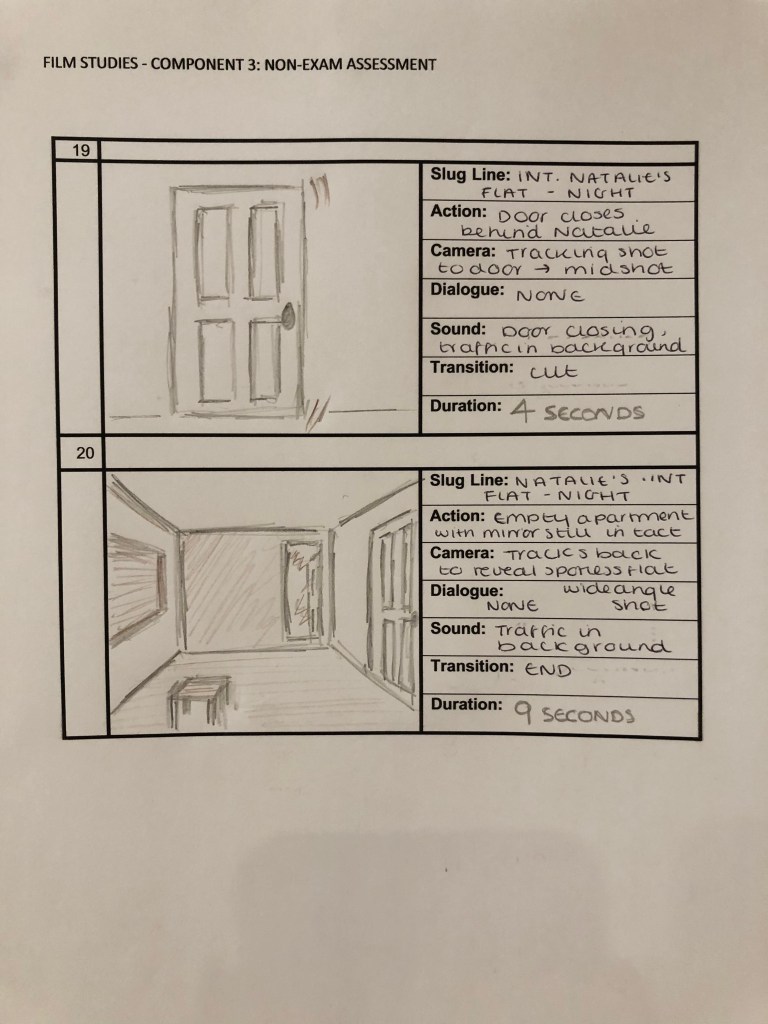 FILM STUDIES - COMPONENT 3: NON-EXAM ASSESSMENT
19
Slug Line: INT. NATALIE'S
FLAT - NIGHT
Action: Door closes
behind Natalie
Camera: Tracking shot
to door → midshot
Dialogue: NONE
Sound: Door closing,
traffic in background
Transition: CUT
Duration: 4 SECONDS
20
Slug Line: NATALIE'S INT
FLAT - NIGHT
Action: Empty apartment
with mirror still in tact
Camera: Tracks back
to reveal sponless flat
Dialogue: wide angle
NONE shot
Sound: Traffic in
background
Transition: END
Duration: 9 SECONDS